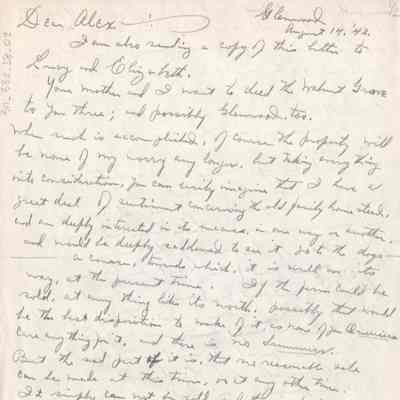 Glenwood
August 14, '42.
Dear Alex—
I am also sending a copy of this letter to
Lucy and Elizabeth.
Your mother and I want to deed the Walnut Grove
to you three; and possibly Glenwood, too.
When such is accomplished, of course the property will
be none of my worry any longer, but taking everything
into consideration, you can easily imagine that I have a
great deal of sentiment concerning the old family homestead,
and am deeply interested in its , in one way or another,
and would be deeply saddened to see it go to the dogs—
a course, towards which, it is well on its
way, at the present time. If the farm could be
sold, at any thing like its worth, possibly that would
be the best disposition to make of it, as none of you
care anything for it, and there is no
But the sad part of it is, that no reasonable sale
can be made at this time, or at any other time.
It simply can not be sold